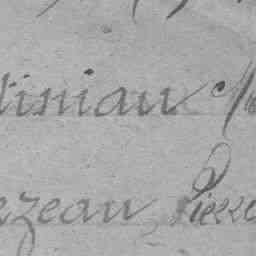 tiniau
ezeau, Pierre